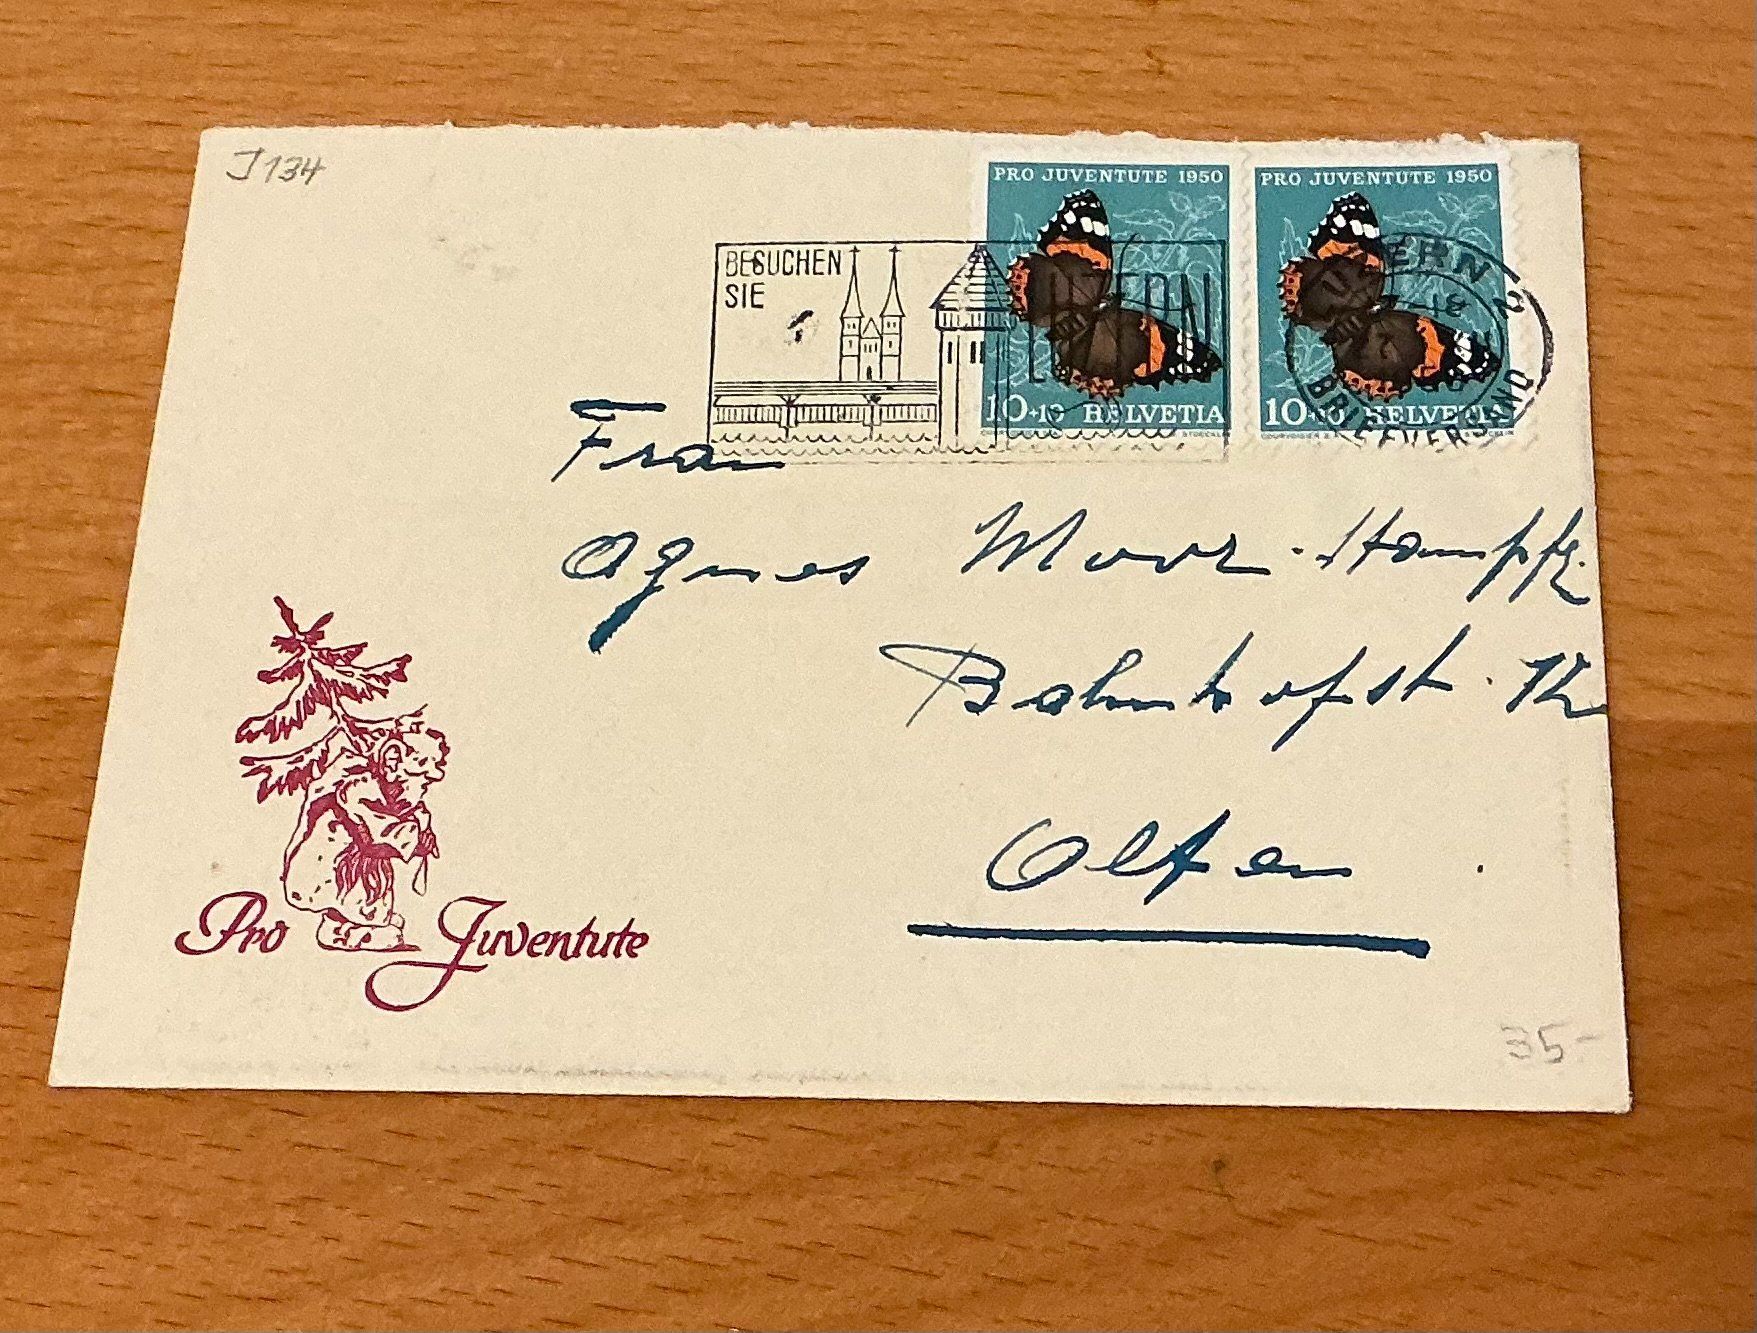 J134
PRO JUVENTUTE 1950
10+10 HELVETIA
PRO JUVENTUTE 1950
10+10 HELVETIA
BESUCHEN
SIE
LUZERN
LUZERN 2
BRIEFVERSAND
Frau
Agnes
Bahnhofst. 12
Olten
Pro Juventute
35-